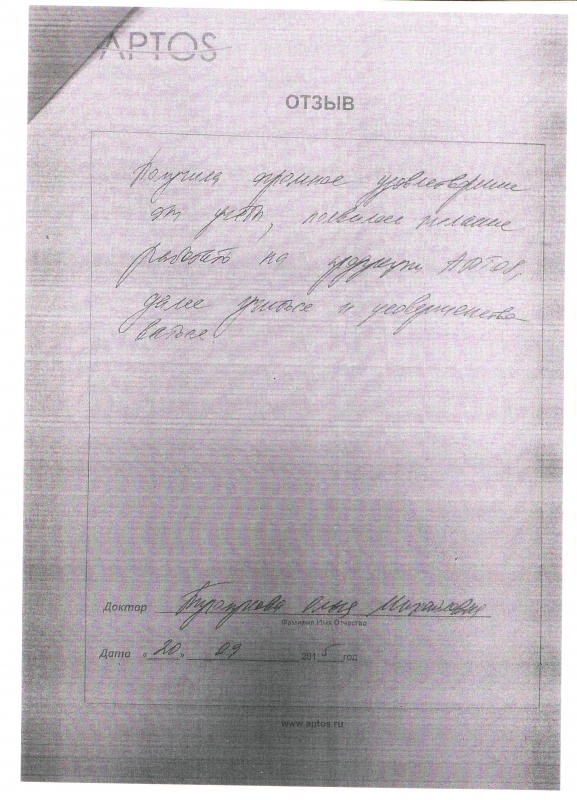 APTOS
ОТЗЫВ
Получила огромное удовлетворение
от учебы, появилось желание
работать на продукции APTOS,
далее учиться и усовершенство
ваться
Доктор Ольга Михайловна
Фамилия Имя Отчество
Дата « 20 » 09 2015 год
www.aptos.ru